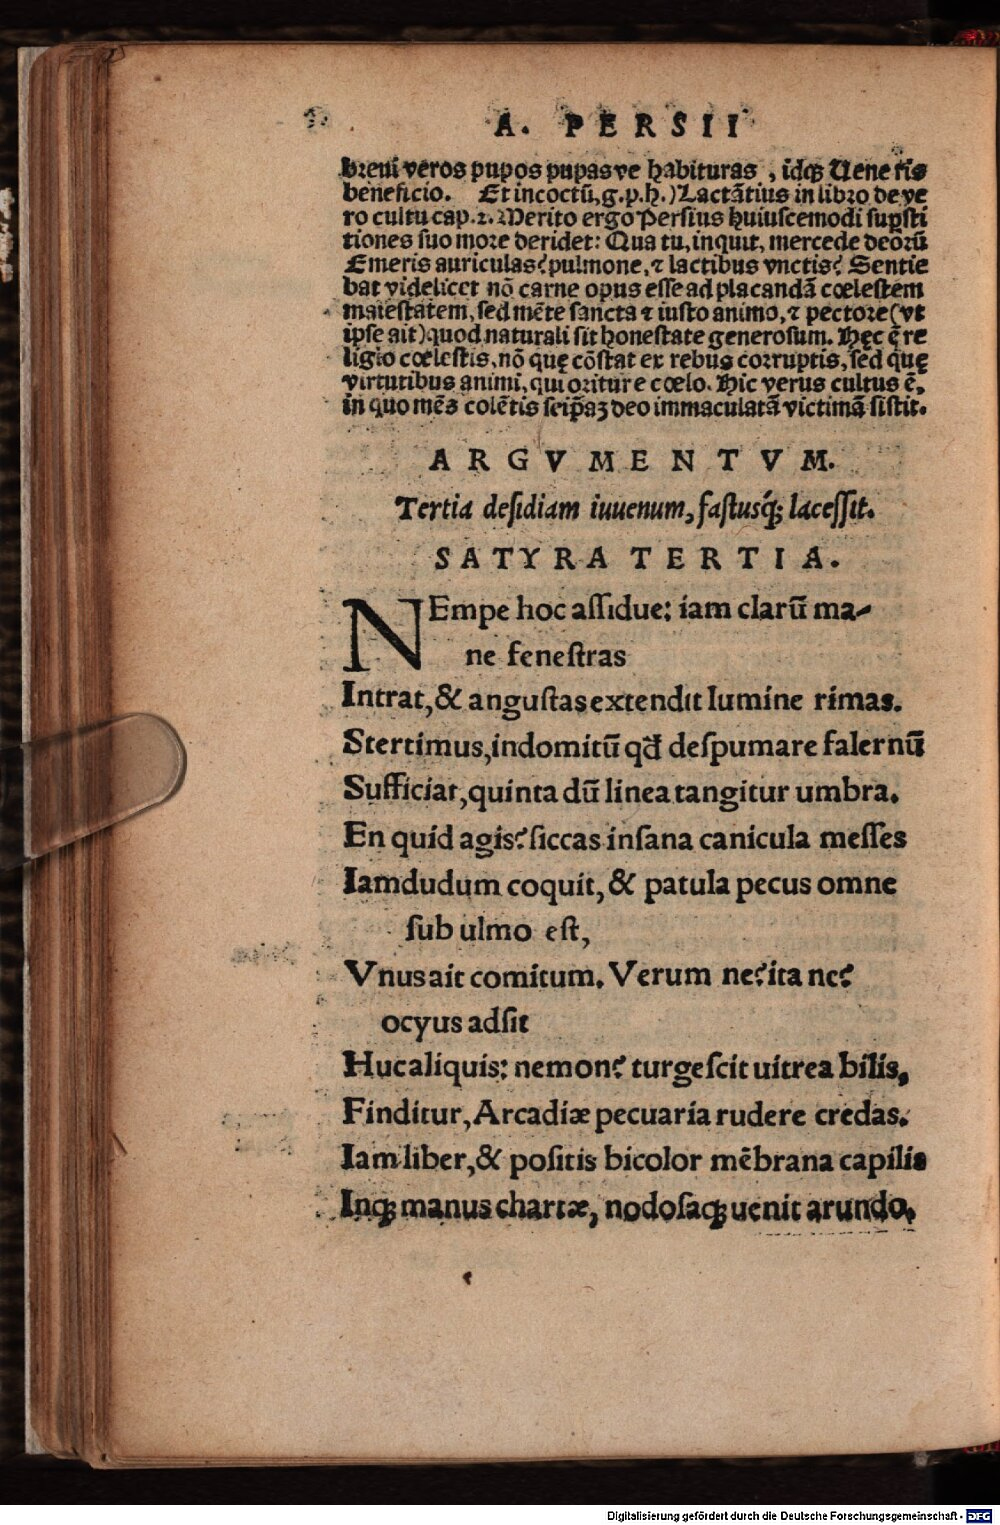 A. PERSII
breui veros pupos pupasve habituras, idq́ꝫ Uene ris
beneficio. Et incoctũ, g. p. h.) Lactãtius in libro de ve
ro cultu cap. 2. Merito ergo Persius huiuscemodi sup̱sti
tiones suo more deridet: Qua tu, inquit, mercede deorũ
Emeris auriculas? pulmone, ⁊ lactibus vnctis? Sentie
bat videlicet nõ carne opus esse ad placandã cœlestem
maiestatem, sed mẽte sancta ⁊ iusto animo, ⁊ pectore (vt
ipse ait) quod naturali sit honestate generosum. Hęc ẽ re
ligio cœlestis, nõ quę cõstat ex rebus corruptis, sed quę
virtutibus animi, qui oritur e cœlo. Hic verus cultus ẽ,
in quo mẽs colẽtis seip̃aꝫ deo immaculatã victimã sistit.
ARGVMENTVM.
Tertia desidiam iuuenum, fastusq́ꝫ lacessit.
SATYRA TERTIA.
NEmpe hoc assidue: iam clarũ ma-
ne fenestras
Intrat, & angustas extendit lumine rimas.
Stertimus, indomitũ qđ despumare falernũ
Sufficiat, quinta dũ linea tangitur umbra.
En quid agis? siccas insana canicula messes
Iamdudum coquit, & patula pecus omne
sub ulmo est,
Vnus ait comitum. Verum ne? ita ne?
ocyus adsit
Huc aliquis: nemon? turgescit uitrea bilis,
Finditur, Arcadiæ pecuaria rudere credas.
Iam liber, & positis bicolor mẽbrana capilis
Inqꝫ manus chartæ, nodosaqꝫ uenit arundo.
Digitalisierung gefördert durch die Deutsche Forschungsgemeinschaft - DFG